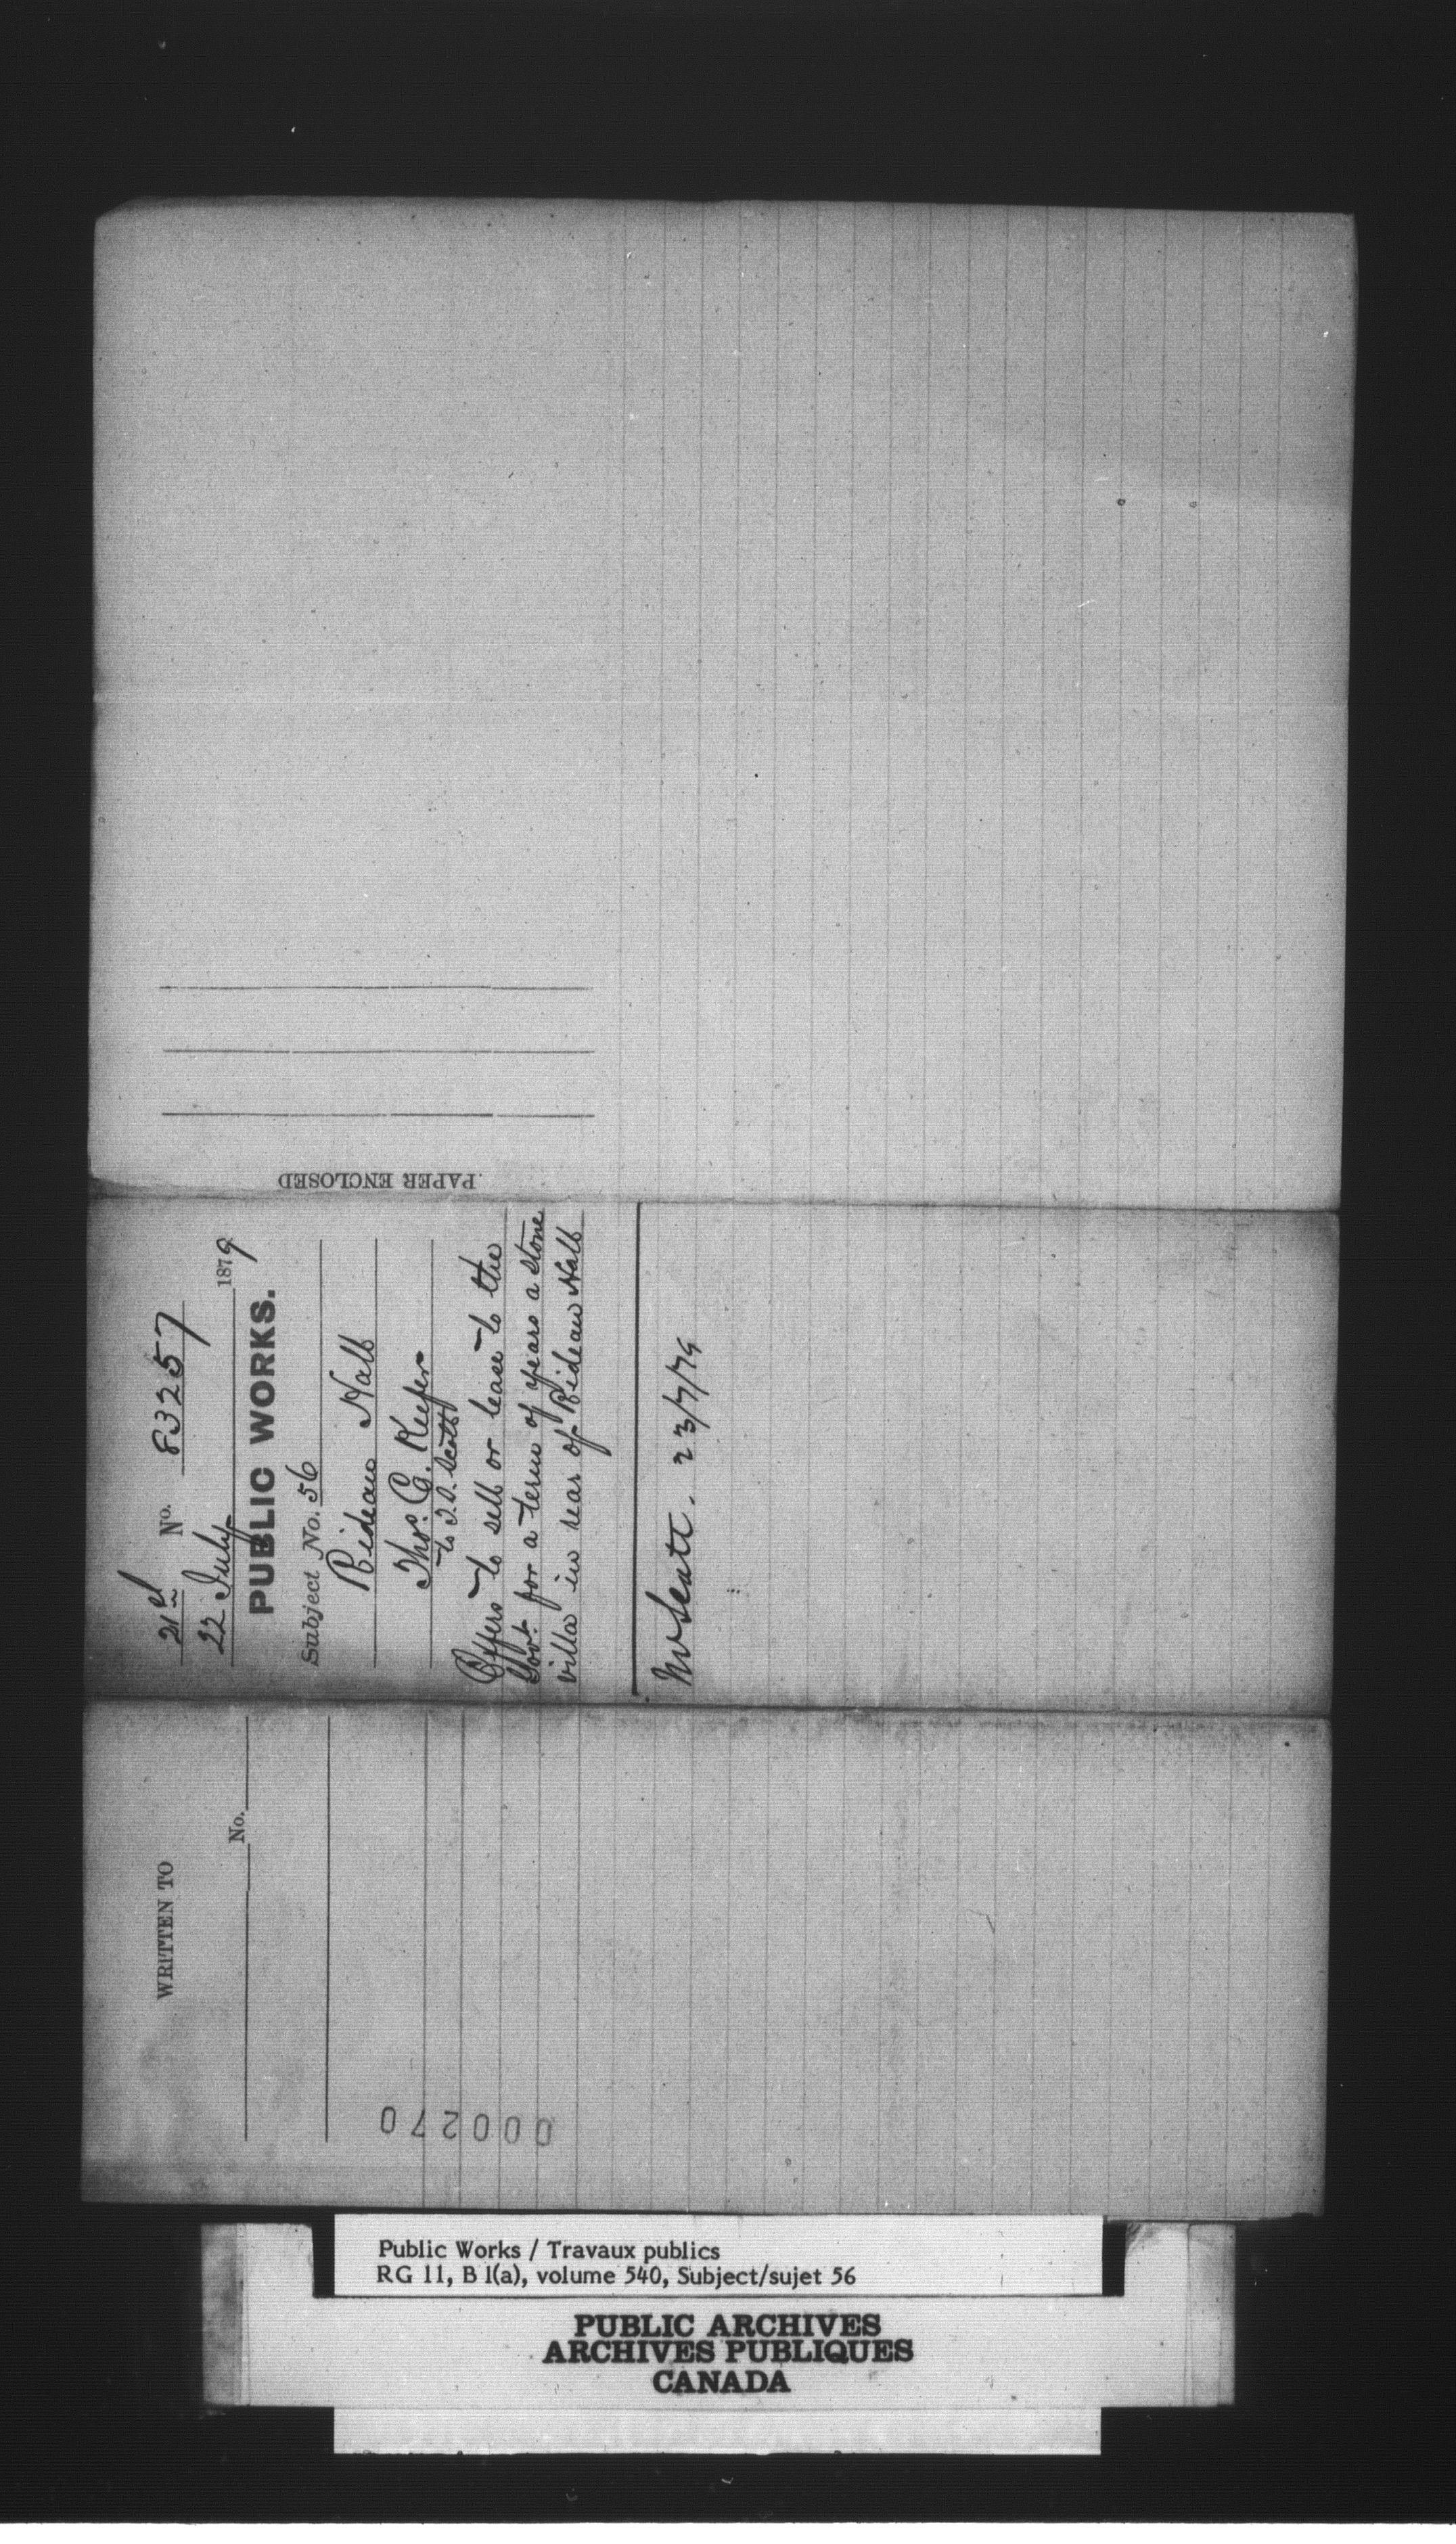 PAPER ENCLOSED
21st No. 83257
22 July 1879
PUBLIC WORKS.
Subject No. 56
Rideau Hall
Thos. C. Keefer
to T.S. Scott
Offers to sell or lease to the
Govt. for a term of years a stone
villa in rear of Rideau Hall
Mr Scott. 23/7/79
WRITTEN TO
No.
000270
Public Works / Travaux publics
RG 11, B 1(a), volume 540, Subject/sujet 56
PUBLIC ARCHIVES
ARCHIVES PUBLIQUES
CANADA